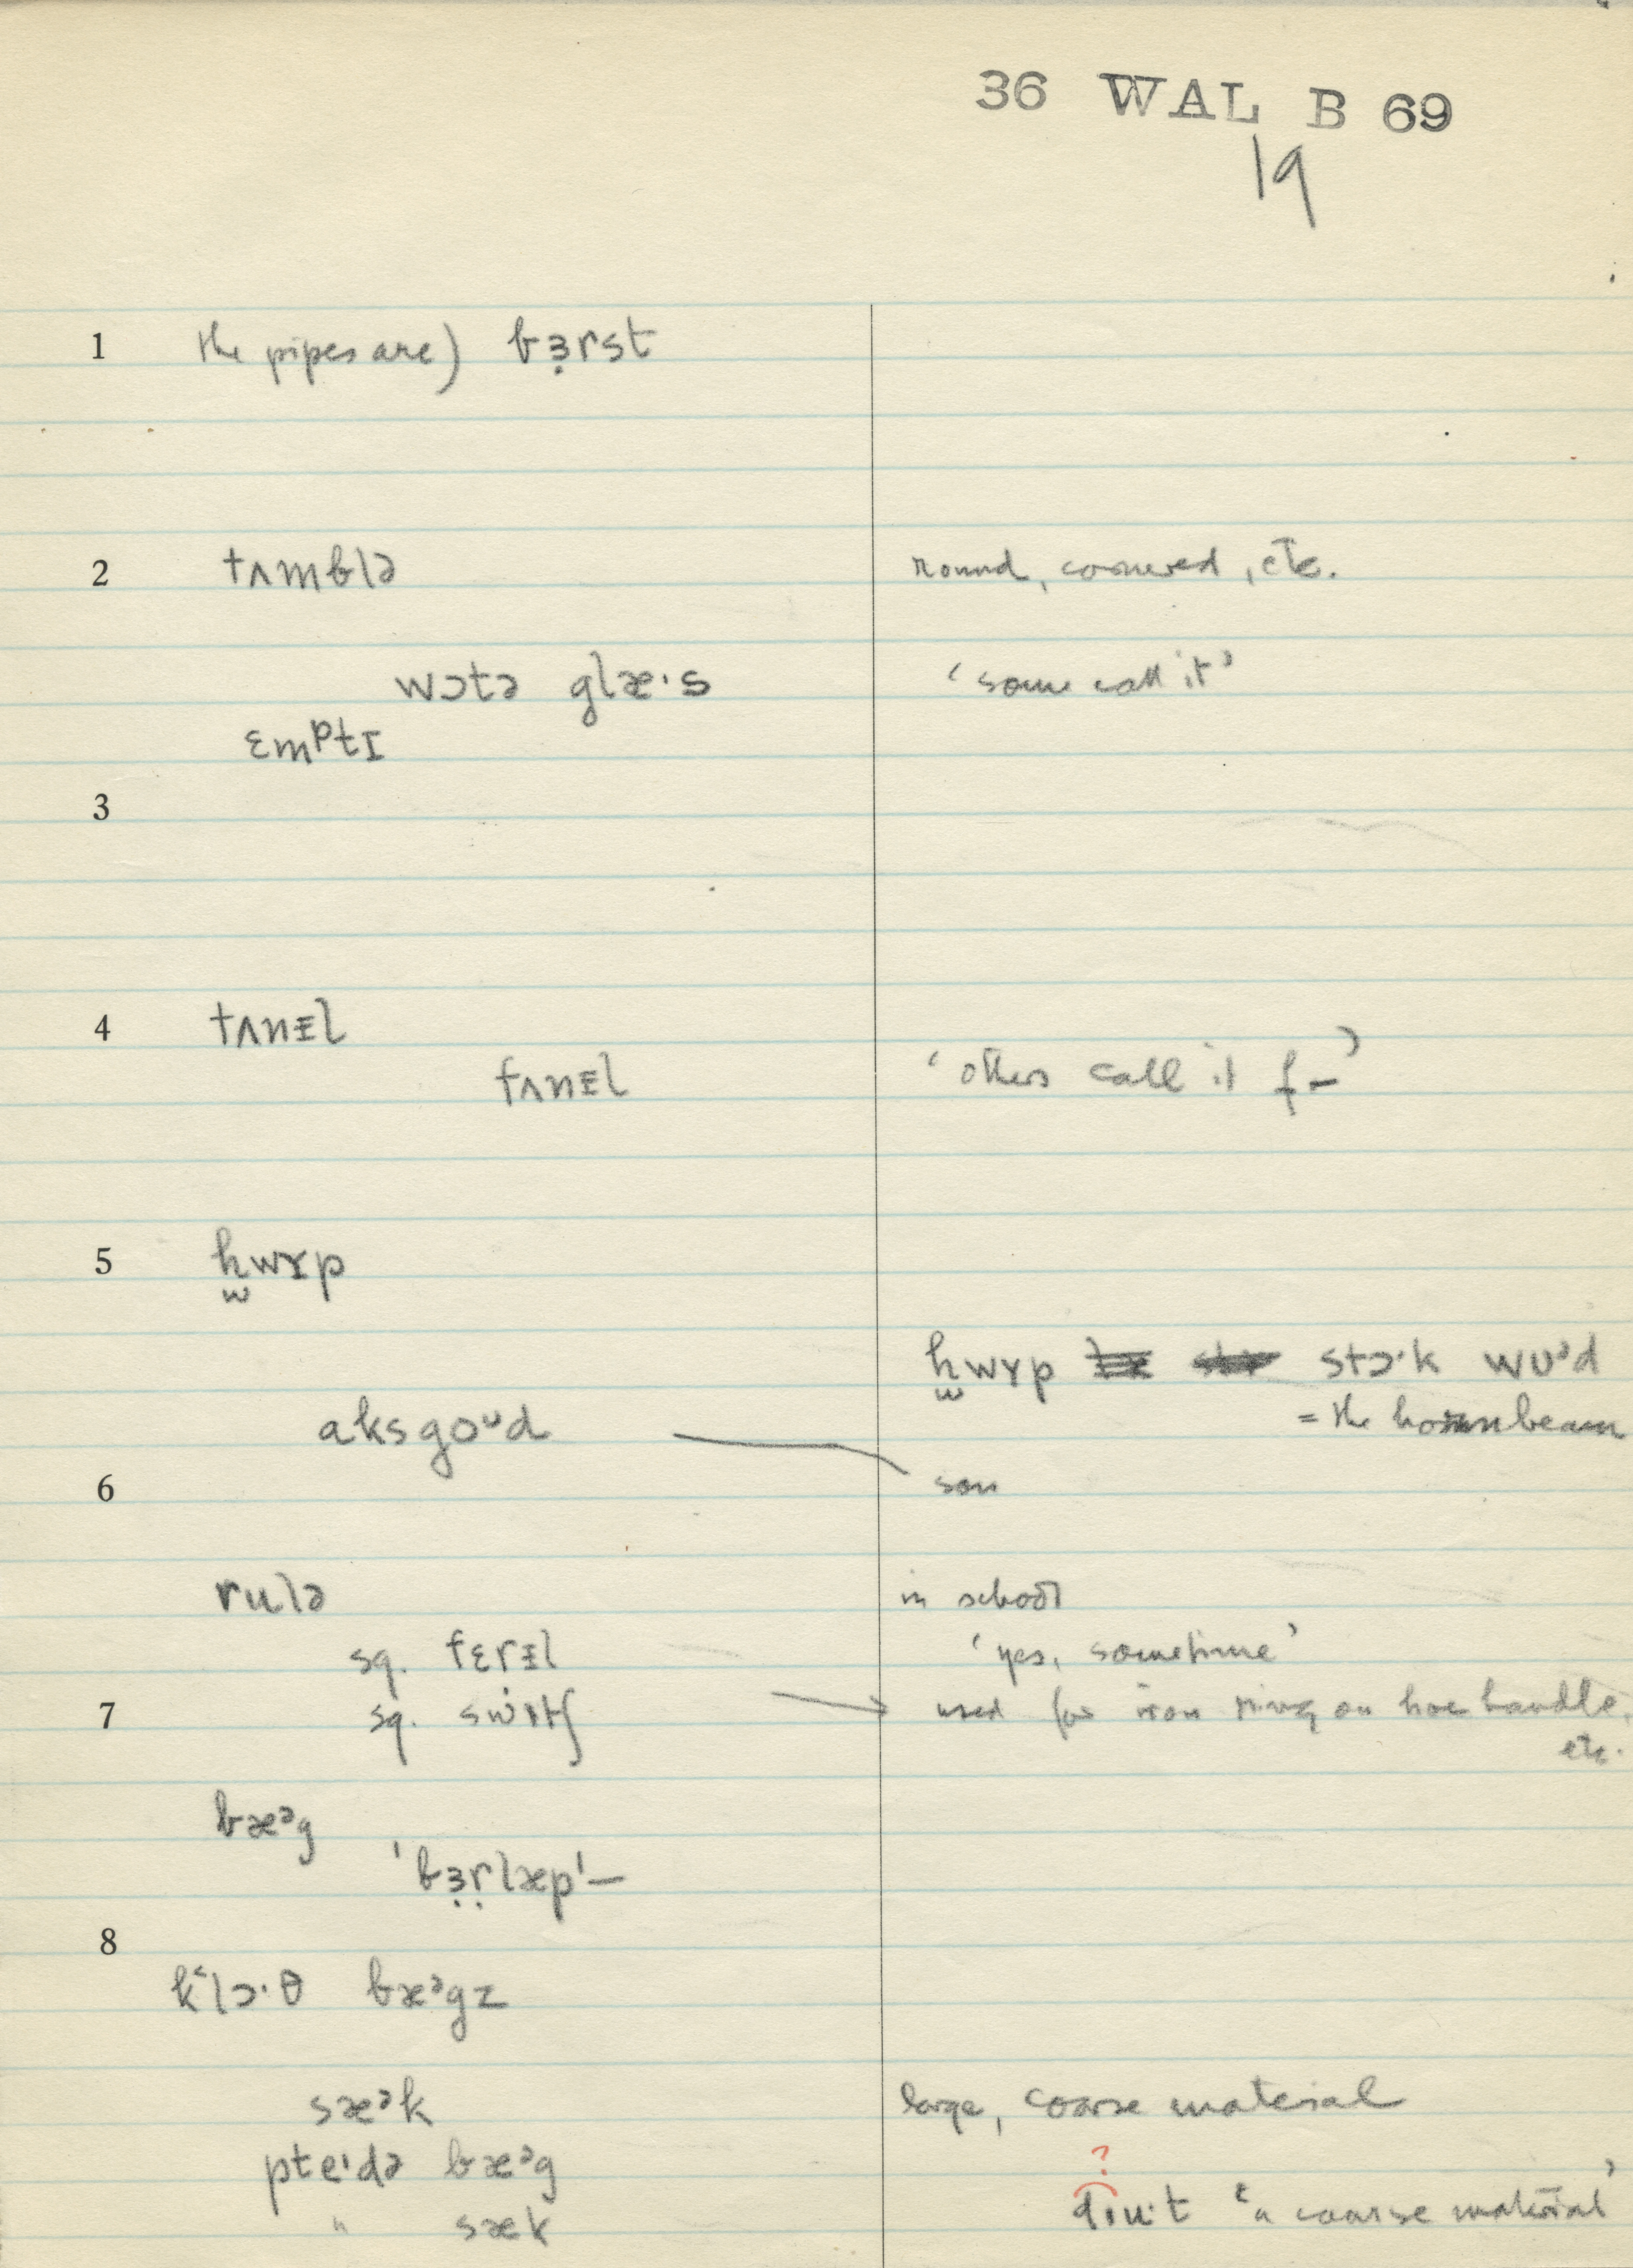 36 WAL B 69
19
1 the pipes are) bɜ̣rst
2 tʌmblə round, cornered, etc.
wɔtə glæ·s ‘some call it’
ɛmᵖtɪ
3
4 tʌnɪ̵l
fʌnɪ̵l ‘others call it f–’
5 h̬wɪp
hwɪp stɔ·k wʊᵊd
= the hornbeam
aksgoᶷd
6 son
rulə in school
sq. fɛrɪ̵l ‘yes, sometime’
7 sq. swɪtʃ used for iron ring on hoe handle,
etc.
bæᵊg
'bɜ̣ṛlæp'–
8
k‘lɔ·θ bæᵊgz
sæᵊk large, coarse material
pteɪdə bæᵊg
?
" sæk ‘a coarse material’